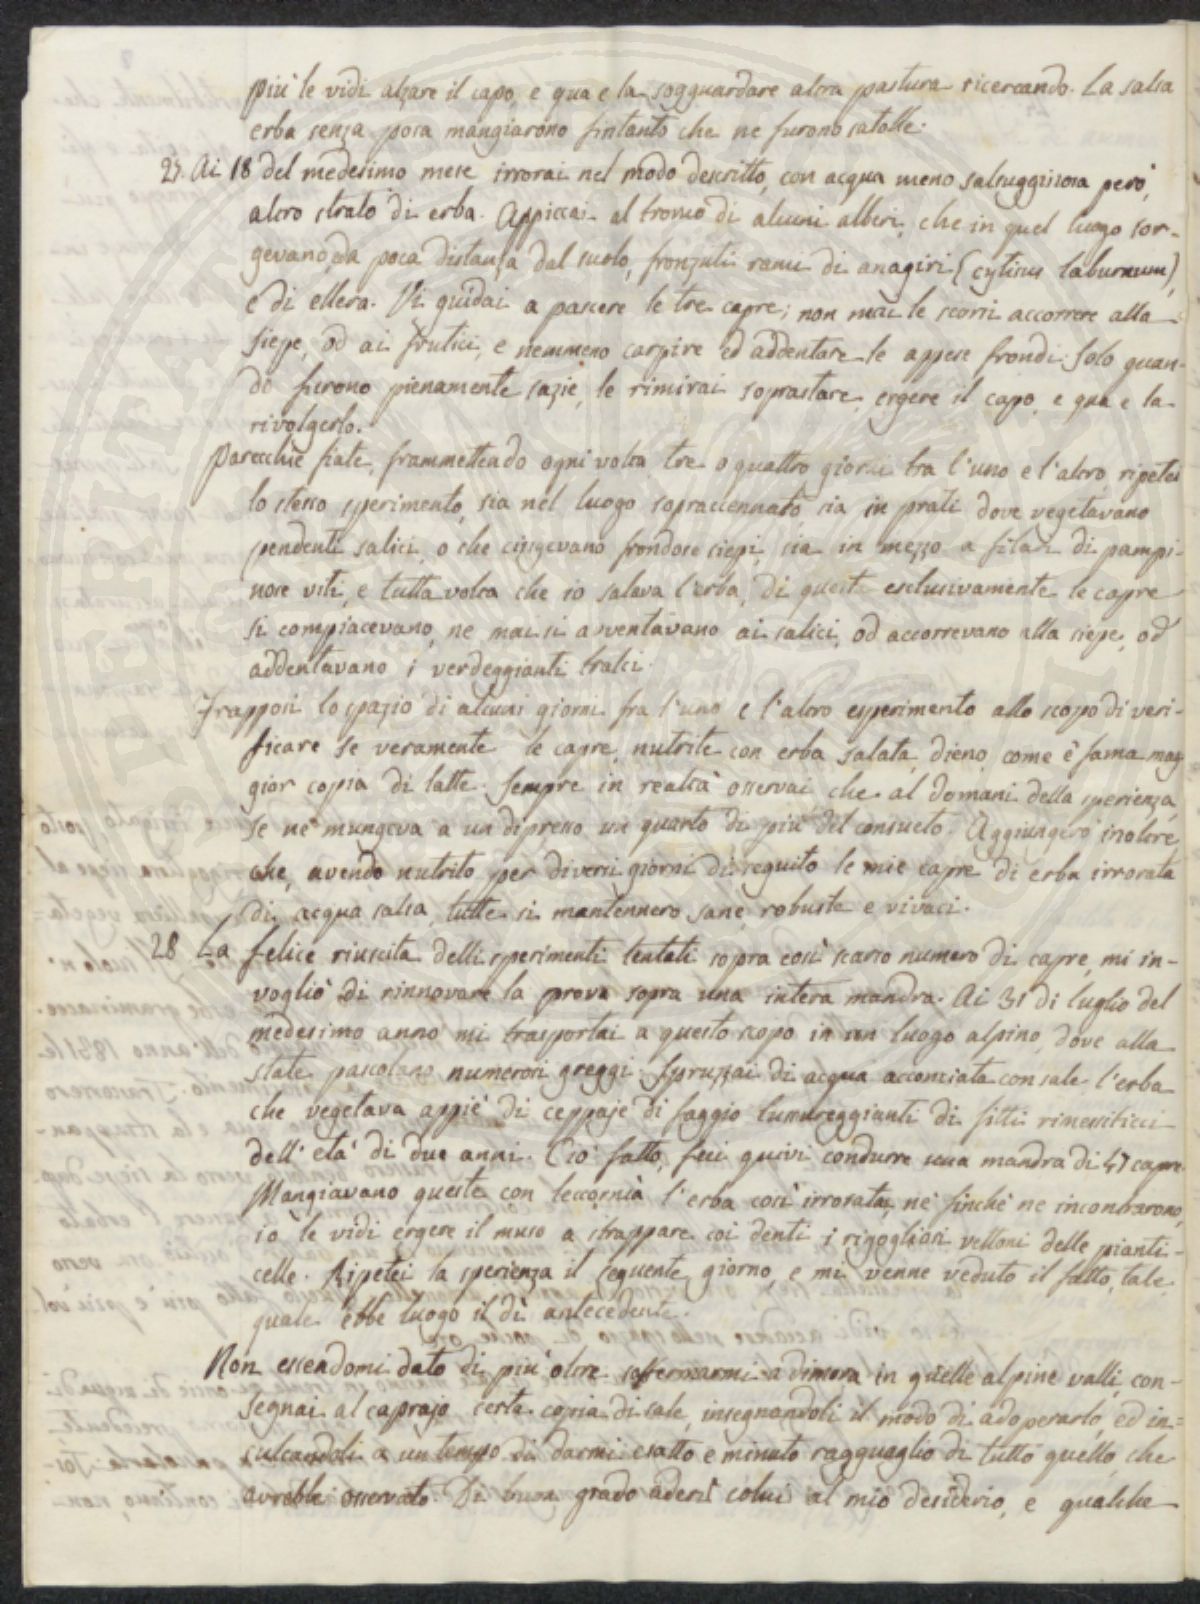 più le vidi alzare il capo, e qua e là sogguardare altra pastura ricercando. La salsa
erba senza posa mangiarono fintanto che ne furono satolle.
27. Ai 18 del medesimo mese irrorai nel modo descritto, con acqua meno salsugginosa però,
altro strato di erba. Appiccai al tronco di alcuni alberi, che in quel luogo sor-
gevano, da poca distanza dal suolo, fronzuti rami di anagiri (cytisus laburnum),
e di ellera. Vi guidai a pascere le tre capre; non mai le scorsi accorrere alla
siepe, od ai frutici, e nemmeno carpire ed addentare le appese frondi. Solo quan-
do furono pienamente sazie, le rimirai soprastare, ergere il capo, e qua e la
rivolgerlo.
Parecchie fiate, frammettendo ogni volta tre o quattro giorni tra l'uno e l'altro, ripetei
lo stesso sperimento, sia nel luogo sopraccennato, sia in prati dove vegetavano
pendenti salici, o che cingevano frondose siepi, sia in mezzo a filari di pampi-
nose viti, e tutta volta che io salava l'erba, di questa esclusivamente le capre
si compiacevano, ne mai si avventavano ai salici, od accorrevano alla siepe, od
addentavano i verdeggianti tralci.
Frapposi lo spazio di alcuni giorni fra l'uno e l'altro esperimento allo scopo di veri-
ficare se veramente le capre, nutrite con erba salata, dieno, come è fama mag-
gior copia di latte. Sempre in realtà osservai, che al domani della sperienza,
se ne mungeva a un dipresso un quarto di più del consueto. Aggiungerò inoltre,
che, avendo nutrito per diversi giorni di seguito le mie capre di erba irrorata
di acqua salsa, tutte si mantennero sane, robuste e vivaci.
28 La felice riuscita delli sperimenti tentati sopra così scarso numero di capre, mi in-
vogliò di rinnovare la prova sopra una intera mandra. Ai 31 di luglio del
medesimo anno mi trasportai a questo scopo in un luogo alpino, dove alla
state pascolano numerosi greggi. Spruzzai di acqua acconciata con sale l'erba
che vegetava appiè di ceppaje di faggio lussureggianti di fitti rimessiticci
dell'età di due anni. Ciò fatto, feci quivi condurre una mandra di 47 capre.
Mangiavano queste con leccornia l'erba così irrorata, nè finchè ne incontrarono,
io le vidi ergere il muso a strappare coi denti i rigogliosi vettoni delle pianti-
celle. Ripetei la sperienza il seguente giorno, e mi venne veduto il fatto, tale
quale ebbe luogo il dì antecedente.
Non essendomi dato di più oltre soffermarmi a dimora in quelle alpine valli, con-
segnai al caprajo certa copia di sale, insegnandoli il modo di adoperarlo, ed in-
culcandoli a un tempo di darmi esatto e minuto ragguaglio di tutto quello, che
avrebbe osservato. Di buon grado aderì colui al mio desiderio, e qualche